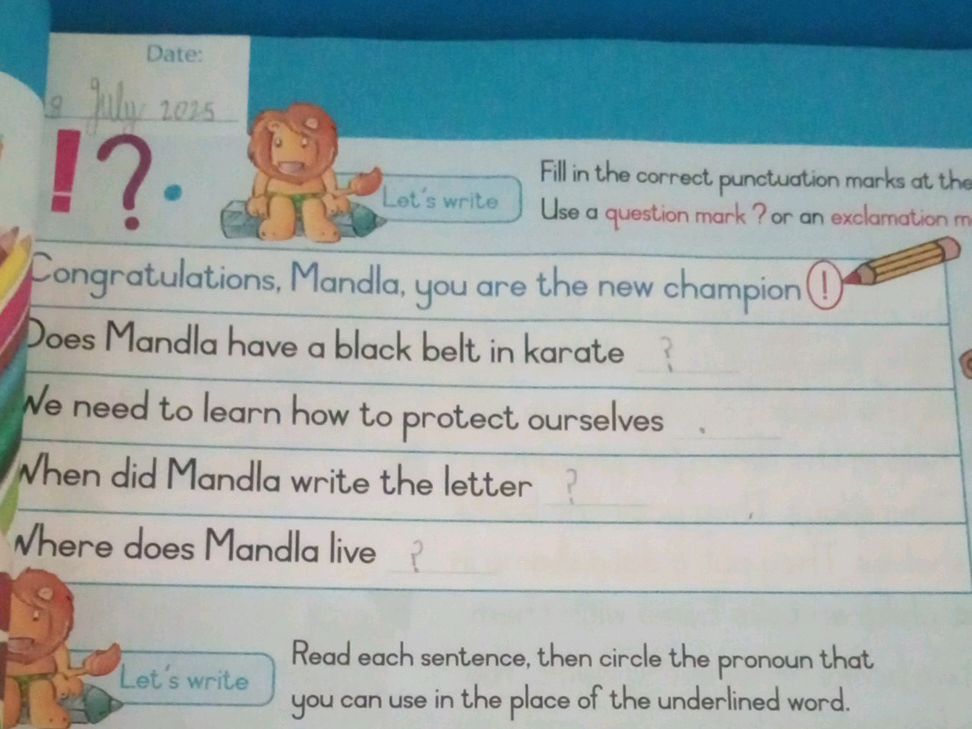 Date:
8 July 2025
! ? .
Let's write
Fill in the correct punctuation marks at the
Use a question mark ? or an exclamation
Congratulations, Mandla, you are the new champion !
Does Mandla have a black belt in karate ?
We need to learn how to protect ourselves .
When did Mandla write the letter ?
Where does Mandla live ?
Let's write
Read each sentence, then circle the pronoun that
you can use in the place of the underlined word.